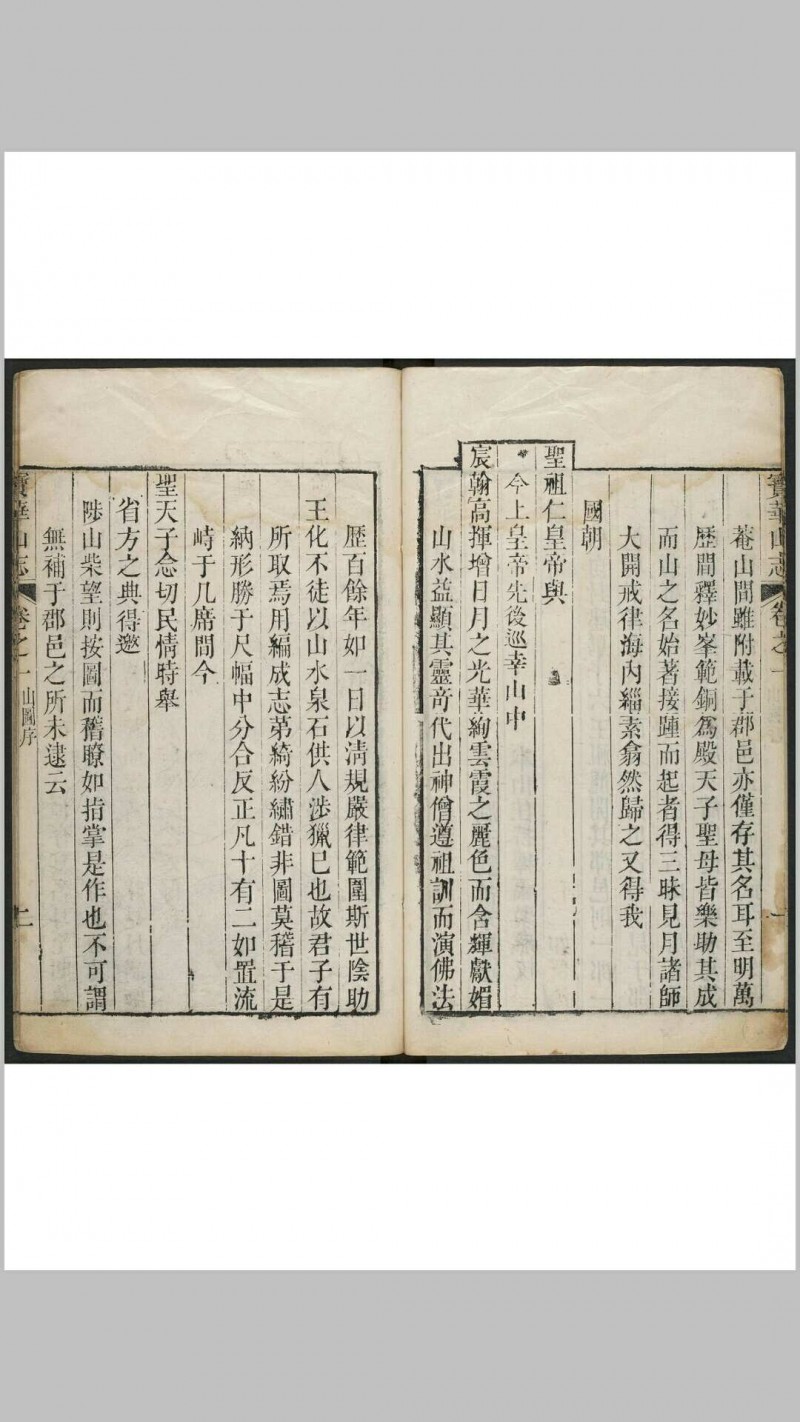 寶華山志
卷之一
一
菴山間雖附載于郡邑亦僅存其名耳至明萬
歷間釋妙峯範銅爲殿天子聖母皆樂助其成
而山之名始著接踵而起者得三昧見月諸師
大開戒律海內緇素翕然歸之又得我
國朝
聖祖仁皇帝與
今上皇帝先後巡幸山中
宸翰高揮增日月之光華絢雲霞之麗色而含輝獻媚
山水益顯其靈奇代出神僧遵祖訓而演佛法
歷百餘年如一日以淸規嚴律範圍斯世陰助
王化不徒以山水泉石供人涉獵已也故君子有
所取焉用編成志第綺紛繡錯非圖莫稽于是
納形勝于尺幅中分合反正凡十有二如置流
峙于几席間今
聖天子念切民情時舉
省方之典得邀
陟山柴望則按圖而稽瞭如指掌是作也不可謂
無補于郡邑之所未逮云
寶華山志
卷之一
山圖序
二